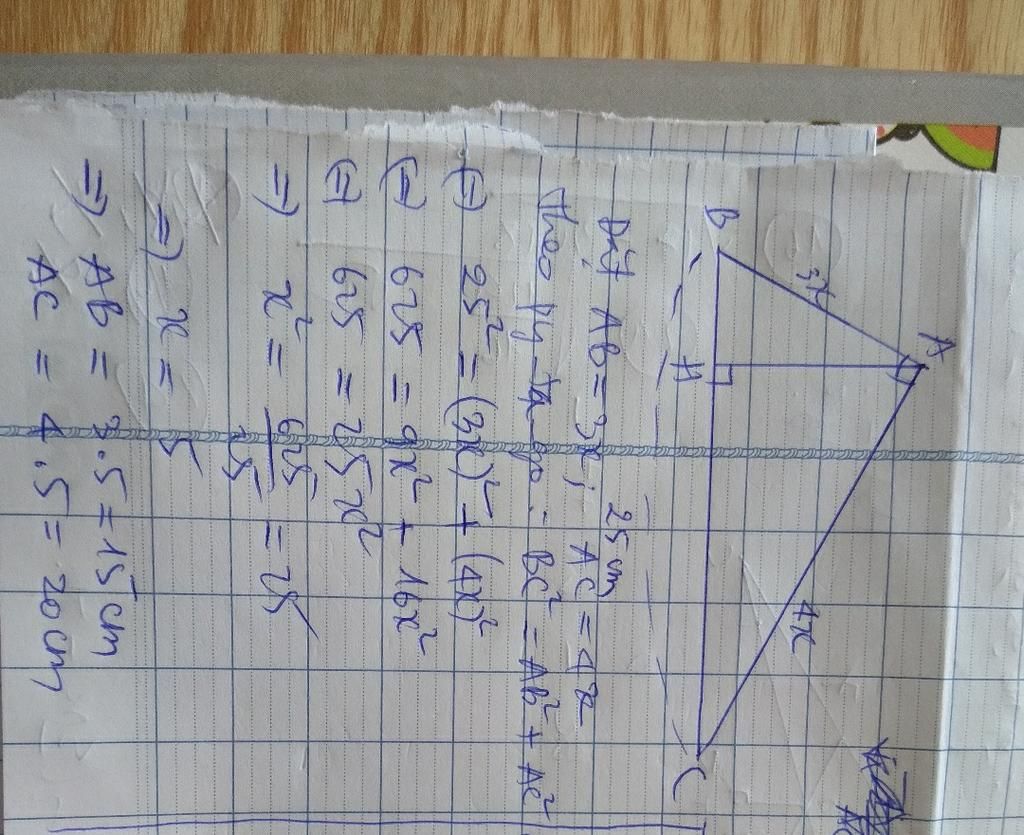 A
3x
4x
B
H
C
25 cm
Đặt AB = 3x; AC = 4x
Theo Py-ta-go: BC² = AB² + AC²
(=) 25² = (3x)² + (4x)²
(=) 625 = 9x² + 16x²
(=) 625 = 25x²
=) x² = 625/25 = 25
=) x = 5
=) AB = 3.5 = 15 cm
AC = 4.5 = 20 cm